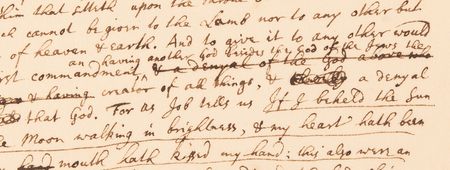 him that sitteth upon the throne
cannot be given to the Lamb nor to any other but
of heaven & earth. And to give it to any other would
an having another God besides the God of the Jews the
first commandment & a denial of the God above who
& having creator of all things, & a denial
that God. For as Job tells us If I beheld the Sun
Moon walking in brightness, & my heart hath been
mouth hath kissed my hand: this also were an